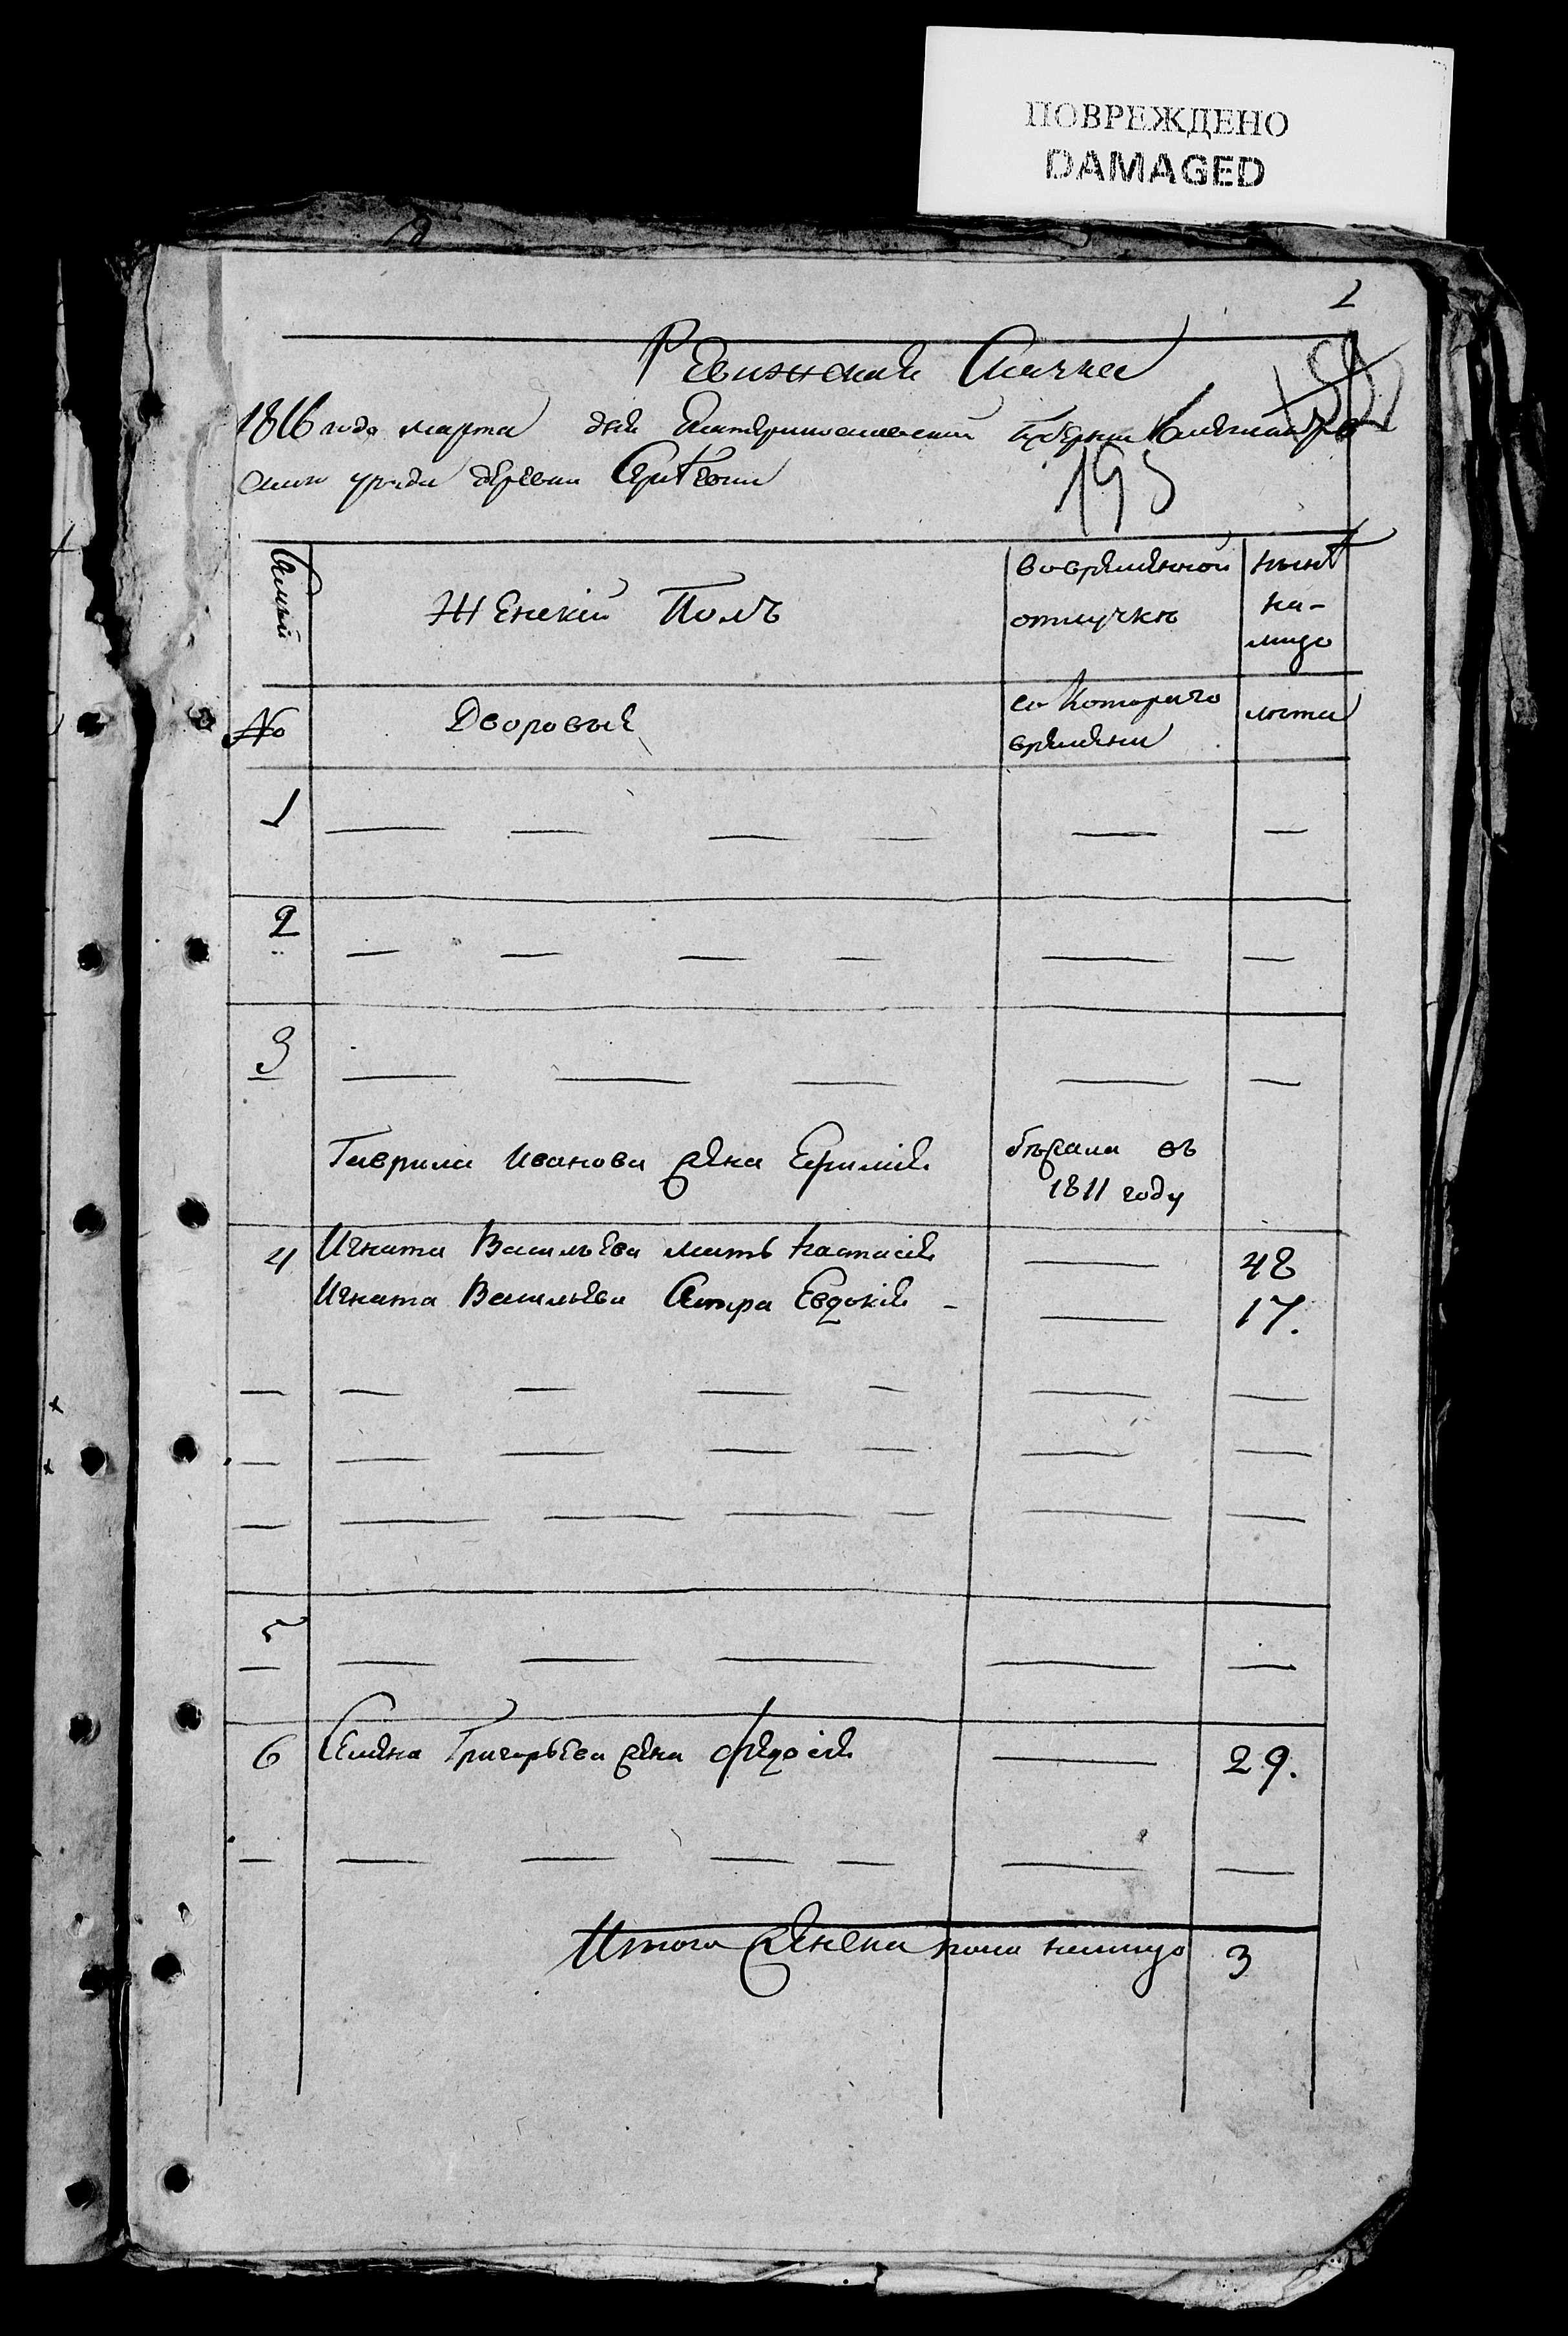 ПОВРЕЖДЕНО
DAMAGED
2
Ревижская Скаска
1816 года марта дня Екатеринославской Губернии Александров
скаго уезда деревни
195
Семьи
Женскій Полъ
вовременной отлучкѣ
нынѣ на-лицо
№
Дворовые
со Котораго времени
лѣта
1
2
3
Гаврила Иванова жена Ефимия
бѣжала въ 1811 году
4 Игната Васильева мать Настасия 48
Игната Васильева Сестра Евдокия 17.
5
6 Семена Григорьева жена Федосия 29.
Итого женска пола налицо 3